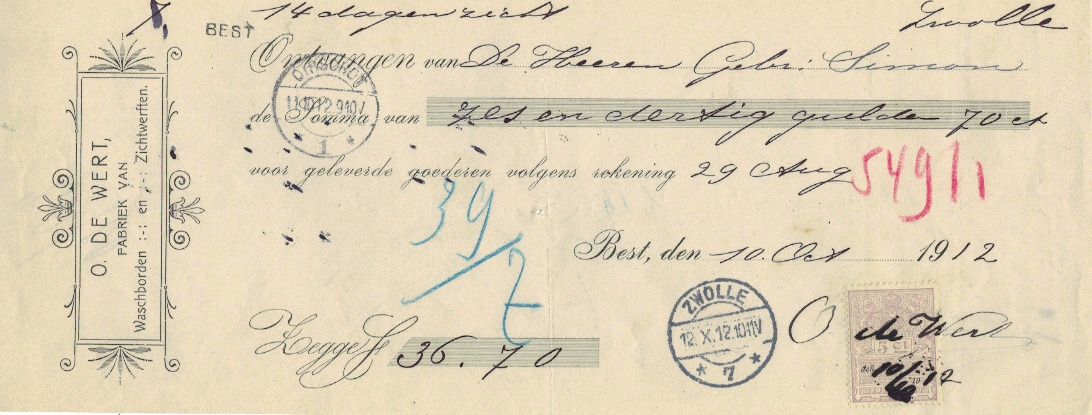 14 dagen zicht Zwolle
BEST
Ontvangen van De Heeren Gebr: Simon
de Somma van Zes en dertig gulden 70 ct
voor geleverde goederen volgens rekening 29 Aug
5491
39/7
Best, den 10 Oct 1912
O de Wert
Zegge f 36.70
O. DE WERT,
FABRIEK VAN
Waschborden :-: en :-: Zichtwerften.
1
ZWOLLE
12.X.12.1011V
7
5 CT
10/10 12